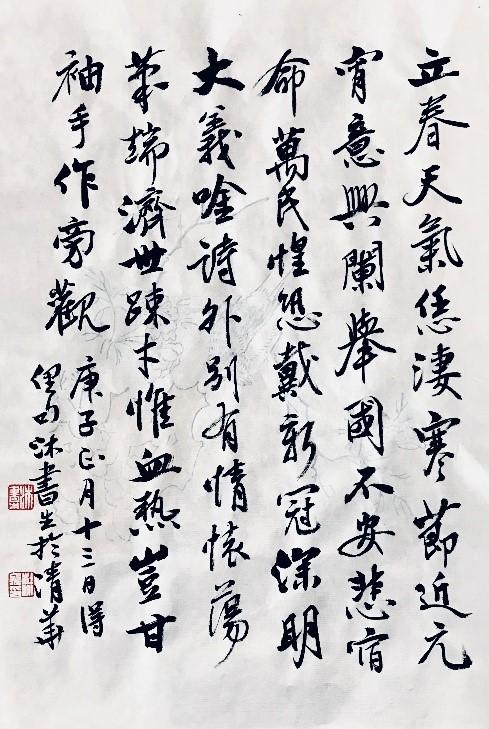 立春天氣恁淒寒節近元
宵意興闌舉國不安悲宿
命萬民惶恐戴新冠深明
大義唫詩外別有情懷蕩
筆端濟世踈才惟血熱豈甘
袖手作旁觀
庚子正月十三日得
俚句沐書生於清華